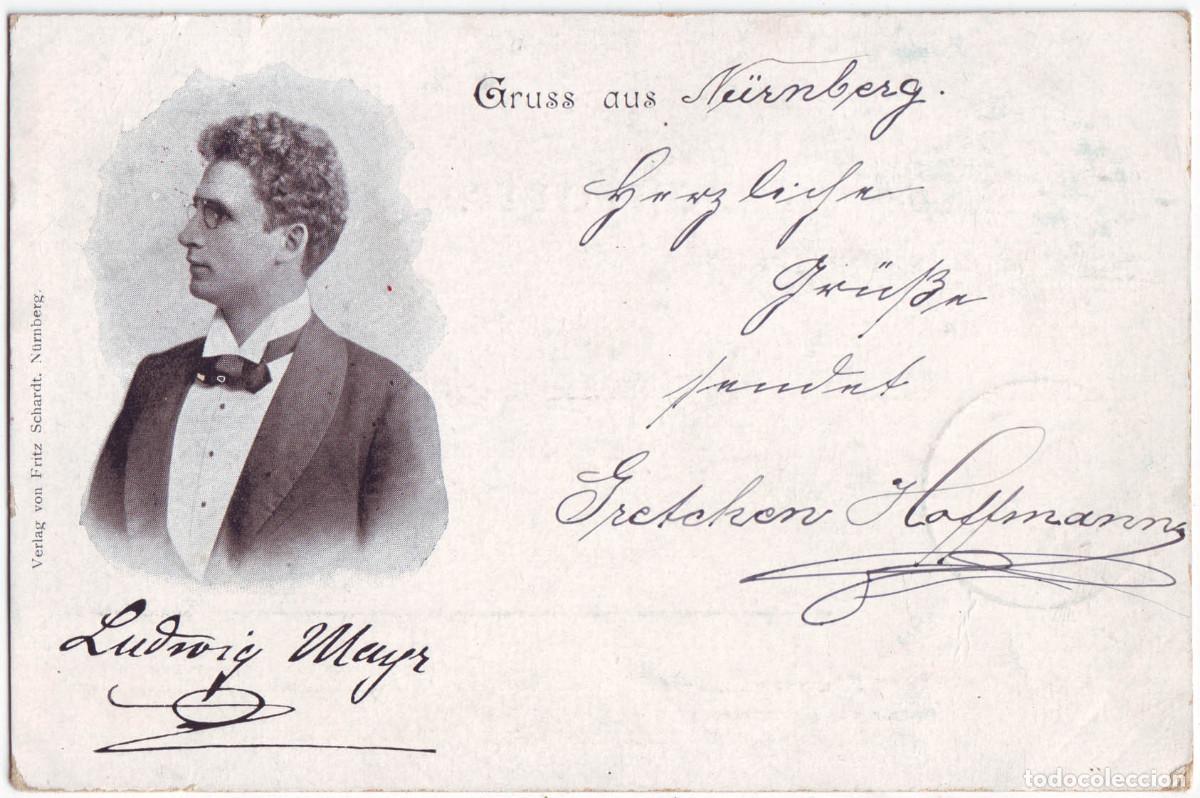 Gruss aus Nürnberg.
Herzliche
Grüße
sendet
Gretchen Hoffmann
Verlag von Fritz Schardt, Nürnberg.
Ludwig Mayr
todocoleccion